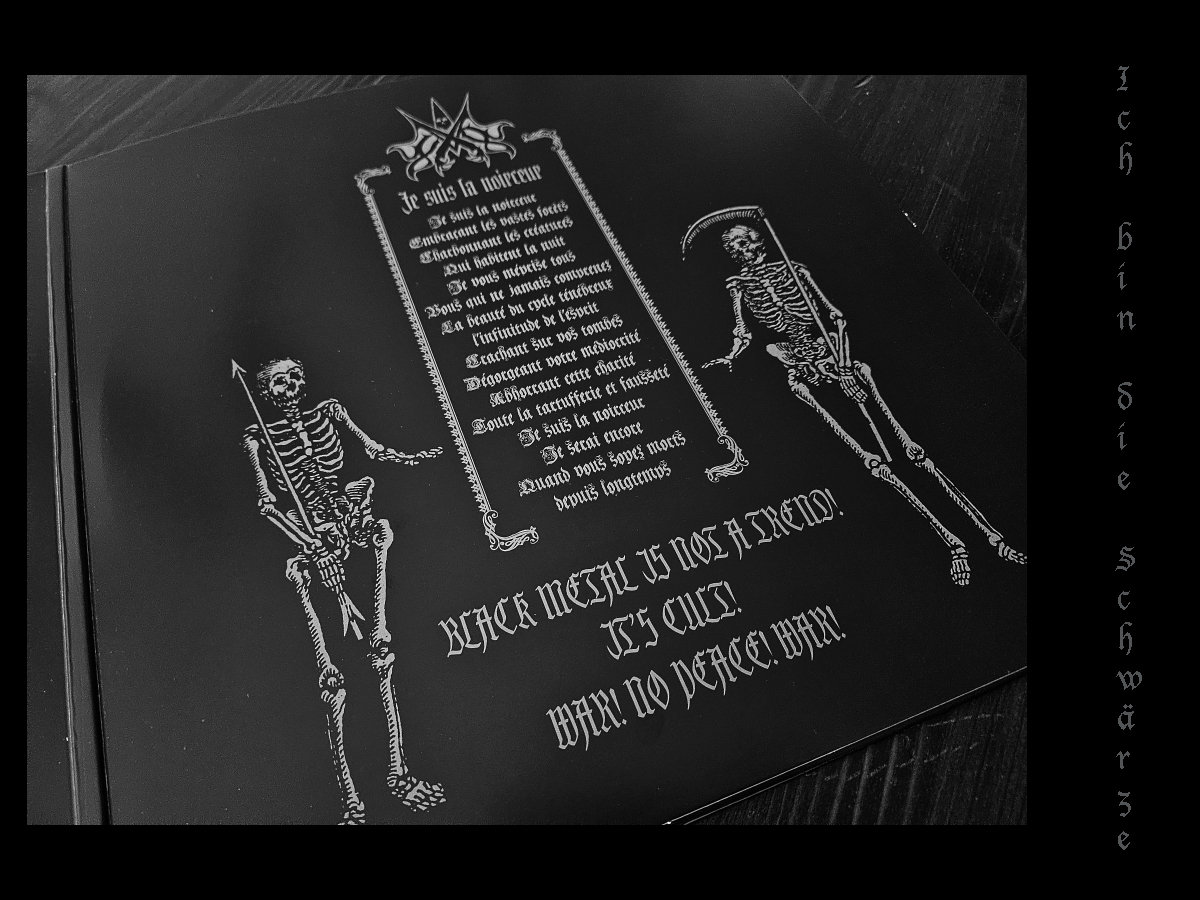 Je suis la noirceur
Je suis la noirceur
Embraçant les vastes forêts
Charbonnant les créatures
Qui habitent la nuit
Je vous méprise tous
Vous qui ne jamais comprenez
La beauté du cycle ténébreux
l'infinitude de l'ésprit
Crachant sur vos tombes
Dégorgeant votre médiocrité
Abhorrant cette charité
Toute la tartufferie et fausseté
Je suis la noirceur
Je serai encore
Quand vous soyez morts
depuis longtemps
BLACK METAL IS NOT A TREND!
IT'S CULT!
WAR! NO PEACE! WAR!
Ich bin die Schwärze